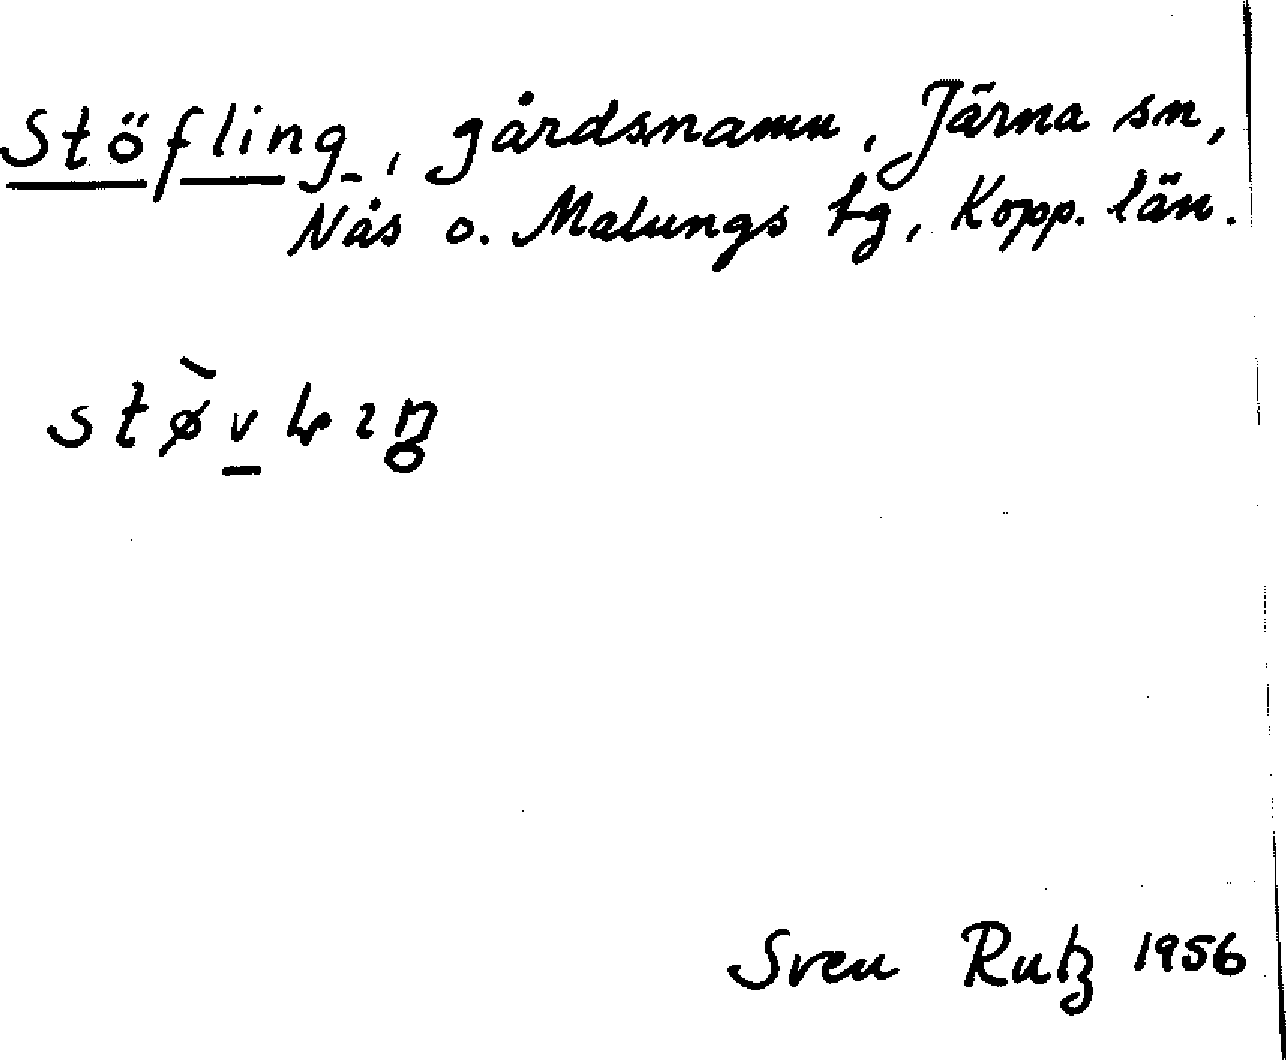 Stöfling, gårdsnamn, Järna sn,
Nås o. Malungs tg, Kopp. län.
Sven Rutz 1956